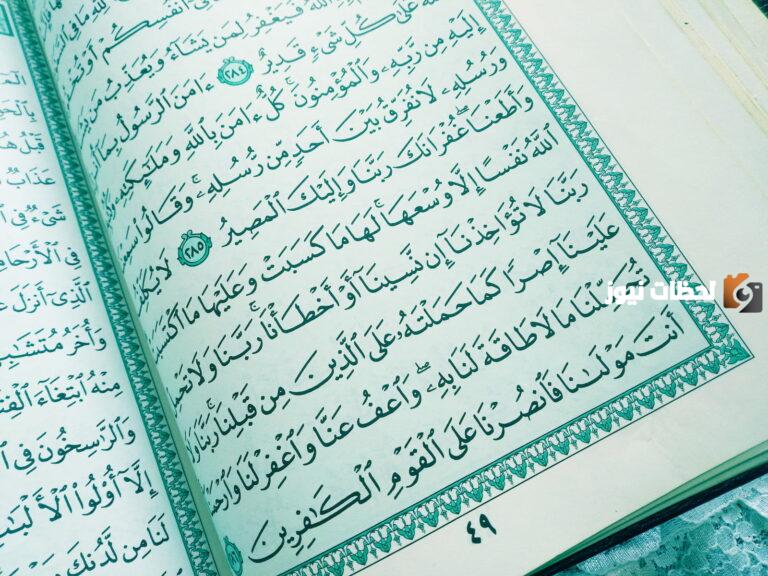 أَنفُسِكُمْ أَوْ
ٱللَّهُ فَيَغْفِرُ لِمَن يَشَآءُ وَيُعَذِّبُ مَن
عَلَىٰ كُلِّ شَىْءٍ قَدِيرٌ ٢٨٤ ءَامَنَ ٱلرَّسُولُ بِمَآ
إِلَيْهِ مِن رَّبِّهِۦ وَٱلْمُؤْمِنُونَ ۚ كُلٌّ ءَامَنَ بِٱللَّهِ وَمَلَٰٓئِكَتِهِۦ
وَرُسُلِهِۦ لَا نُفَرِّقُ بَيْنَ أَحَدٍ مِّن رُّسُلِهِۦ ۚ وَقَالُوا۟
وَأَطَعْنَا ۖ غُفْرَانَكَ رَبَّنَا وَإِلَيْكَ ٱلْمَصِيرُ ٢٨٥ لَا
ٱللَّهُ نَفْسًا إِلَّا وُسْعَهَا ۚ لَهَا مَا كَسَبَتْ وَعَلَيْهَا مَا
رَبَّنَا لَا تُؤَاخِذْنَآ إِن نَّسِينَآ أَوْ أَخْطَأْنَا ۚ رَبَّنَا وَلَا
عَلَيْنَآ إِصْرًا كَمَا حَمَلْتَهُۥ عَلَى ٱلَّذِينَ مِن قَبْلِنَا ۚ رَبَّنَا
تُحَمِّلْنَا مَا لَا طَاقَةَ لَنَا بِهِۦ ۖ وَٱعْفُ عَنَّا وَٱغْفِرْ لَنَا
أَنتَ مَوْلَىٰنَا فَٱنصُرْنَا عَلَى ٱلْقَوْمِ ٱلْكَٰفِرِينَ
٤٩
لحظات نيوز
عَذَابٌ
شَىْءٌ فِى
فِى ٱلْأَرْحَامِ
ٱلَّذِىٓ أَنزَلَ
وَأُخَرُ
مِنْهُ ٱبْتِغَآءَ
وَٱلرَّٰسِخُونَ فِى
إِلَّآ أُو۟لُوا۟ ٱلْأَلْبَٰبِ
لَنَا مِن لَّدُنكَ